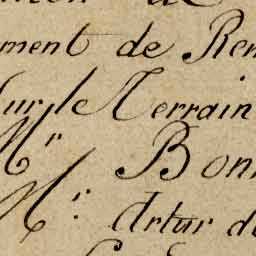 ment de Ren
sur le Terrain
Mr Bon
Mr. Artur de